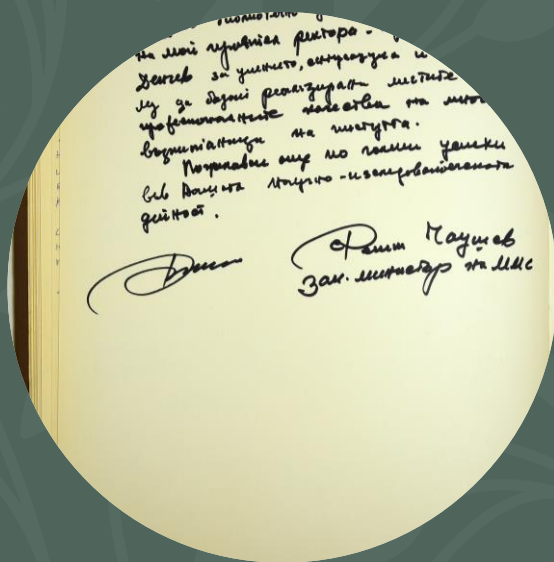 на моя приятел ректора -
Денчев за умението, ентусиазма и
му да бъдат реализирани
професионалните качества на много
възпитаници на института.
Пожелавам още по големи успехи
във Вашата научно-изследователската
дейност.
Чаушев
зам. министър на ММС